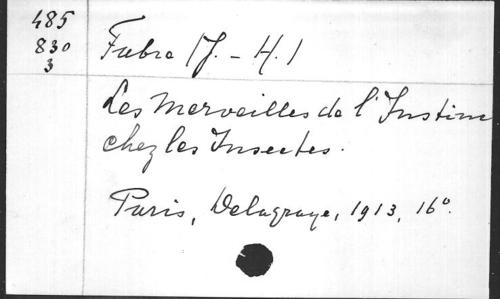 485
830
3
Fabre (J. - H.)
Les Merveilles de l'Instinc
chez les Insectes.
Paris, Delagrave, 1913, 16°.